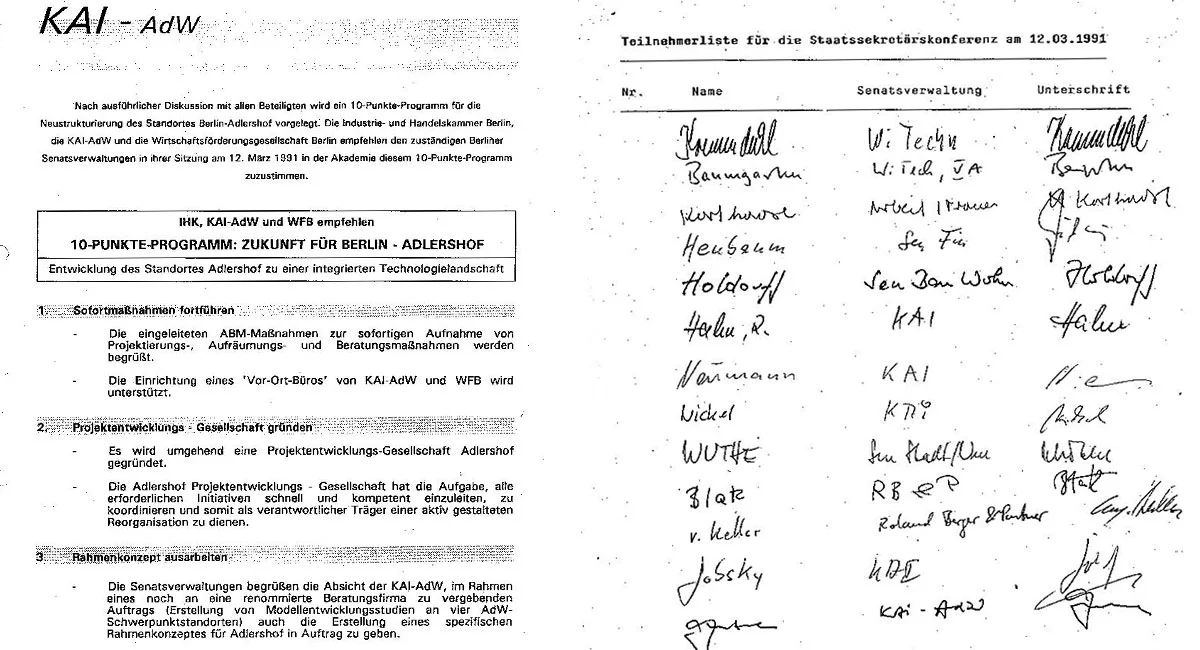 KAI - AdW
Nach ausführlicher Diskussion mit allen Beteiligten wird ein 10-Punkte-Programm für die
Neustrukturierung des Standortes Berlin-Adlershof vorgelegt. Die Industrie- und Handelskammer Berlin,
die KAI-AdW und die Wirtschaftsförderungsgesellschaft Berlin empfehlen den zuständigen Berliner
Senatsverwaltungen in ihrer Sitzung am 12. März 1991 in der Akademie diesem 10-Punkte-Programm
zuzustimmen.
IHK, KAI-AdW und WFB empfehlen
10-PUNKTE-PROGRAMM: ZUKUNFT FÜR BERLIN - ADLERSHOF
Entwicklung des Standortes Adlershof zu einer integrierten Technologielandschaft
1. Sofortmaßnahmen fortführen
- Die eingeleiteten ABM-Maßnahmen zur sofortigen Aufnahme von
Projektierungs-, Aufräumungs- und Beratungsmaßnahmen werden
begrüßt.
- Die Einrichtung eines 'Vor-Ort-Büros' von KAI-AdW und WFB wird
unterstützt.
2. Projektentwicklungs - Gesellschaft gründen
- Es wird umgehend eine Projektentwicklungs-Gesellschaft Adlershof
gegründet.
- Die Adlershof Projektentwicklungs - Gesellschaft hat die Aufgabe, alle
erforderlichen Initiativen schnell und kompetent einzuleiten, zu
koordinieren und somit als verantwortlicher Träger einer aktiv gestalteten
Reorganisation zu dienen.
3 Rahmenkonzept ausarbeiten
- Die Senatsverwaltungen begrüßen die Absicht der KAI-AdW, im Rahmen
eines noch an eine renommierte Beratungsfirma zu vergebenden
Auftrags (Erstellung von Modellentwicklungsstudien an vier AdW-
Schwerpunktstandorten) auch die Erstellung eines spezifischen
Rahmenkonzeptes für Adlershof in Auftrag zu geben.
Teilnehmerliste für die Staatssekretärskonferenz am 12.03.1991
Nr. Name Senatsverwaltung Unterschrift
Wi Techn
Baumgarten Wi Tech, VA
Arbeit / Frauen
Heubaum Sen Fin
Holdorff Sen Bau Wohn Holdorff
Hahn, R. KAI Hahn
Neumann KAI
Nickel KAI
WUTHE Sen Stadt/Um
Blak RB &P
v. Keller Roland Berger & Partner
Jobsky KAI
KAI - AdW